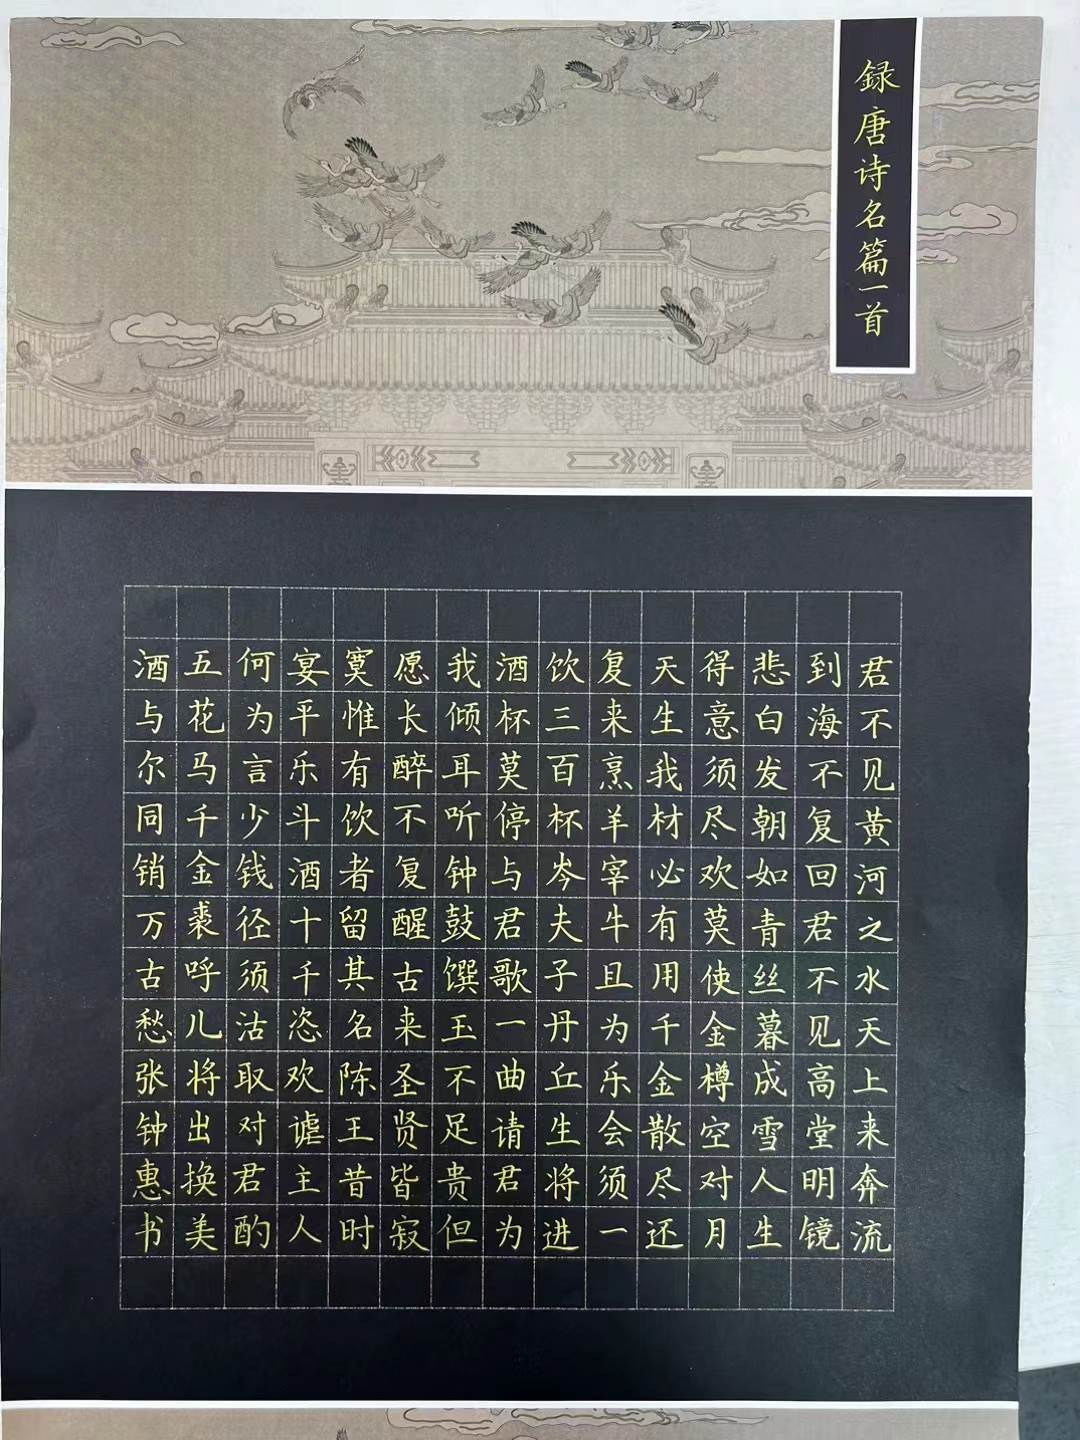 録唐诗名篇一首
君不见黄河之水天上来奔流
到海不复回君不见高堂明镜
悲白发朝如青丝暮成雪人生
得意须尽欢莫使金樽空对月
天生我材必有用千金散尽还
复来烹羊宰牛且为乐会须一
饮三百杯岑夫子丹丘生将进
酒杯莫停与君歌一曲请君为
我倾耳听钟鼓馔玉不足贵但
愿长醉不复醒古来圣贤皆寂
寞惟有饮者留其名陈王昔时
宴平乐斗酒十千恣欢谑主人
何为言少钱径须沽取对君酌
五花马千金裘呼儿将出换美
酒与尔同销万古愁张钟惠书